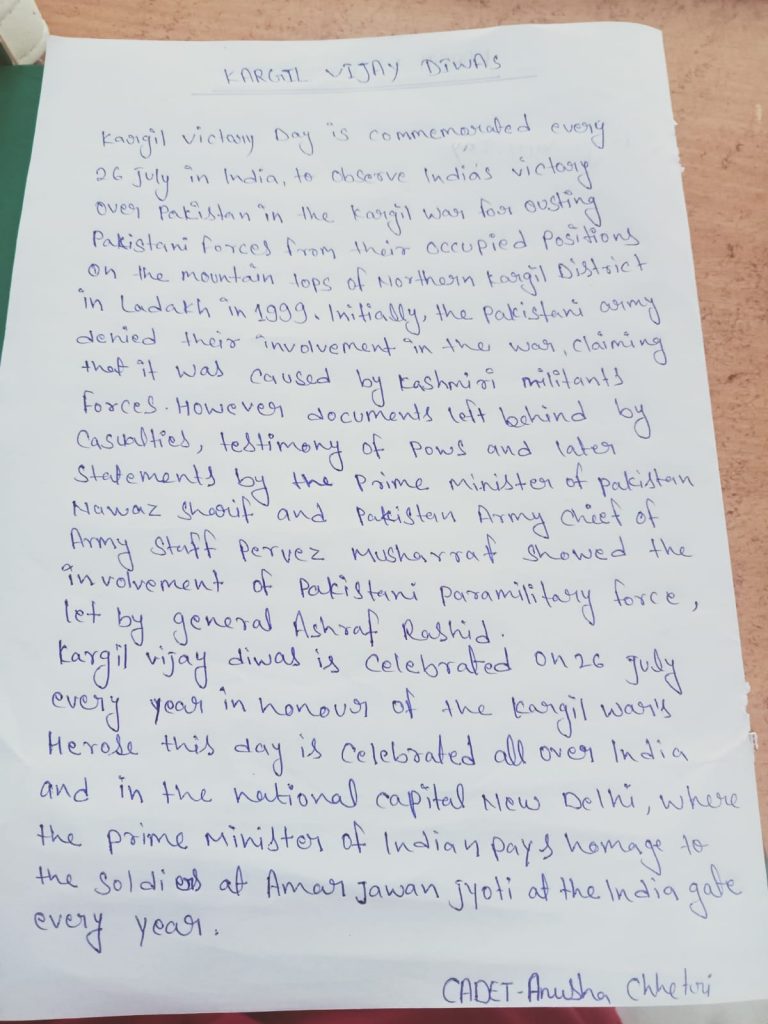 KARGIL VIJAY DIWAS
Kargil victory Day is commemorated every
26 July in India, to observe India's victory
over Pakistan in the Kargil War for ousting
Pakistani Forces from their occupied Positions
on the mountain tops of Northern Kargil District
in Ladakh in 1999. Initially, the Pakistani army
denied their involvement in the war, claiming
that it was caused by Kashmiri militants
Forces. However documents left behind by
Casualties, testimony of Pows and later
Statements by the Prime minister of Pakistan
Nawaz Sharif and Pakistan Army Chief of
Army Staff Pervez Musharraf showed the
involvement of Pakistani paramilitary force,
let by general Ashraf Rashid.
Kargil vijay diwas is Celebrated on 26 July
every year in honour of the Kargil war's
Herose this day is Celebrated all over India
and in the national capital New Delhi, where
the prime Minister of Indian pays homage to
the Soldiers at Amar Jawan jyoti at the India gate
every year.
CADET-Anusha Chhetri